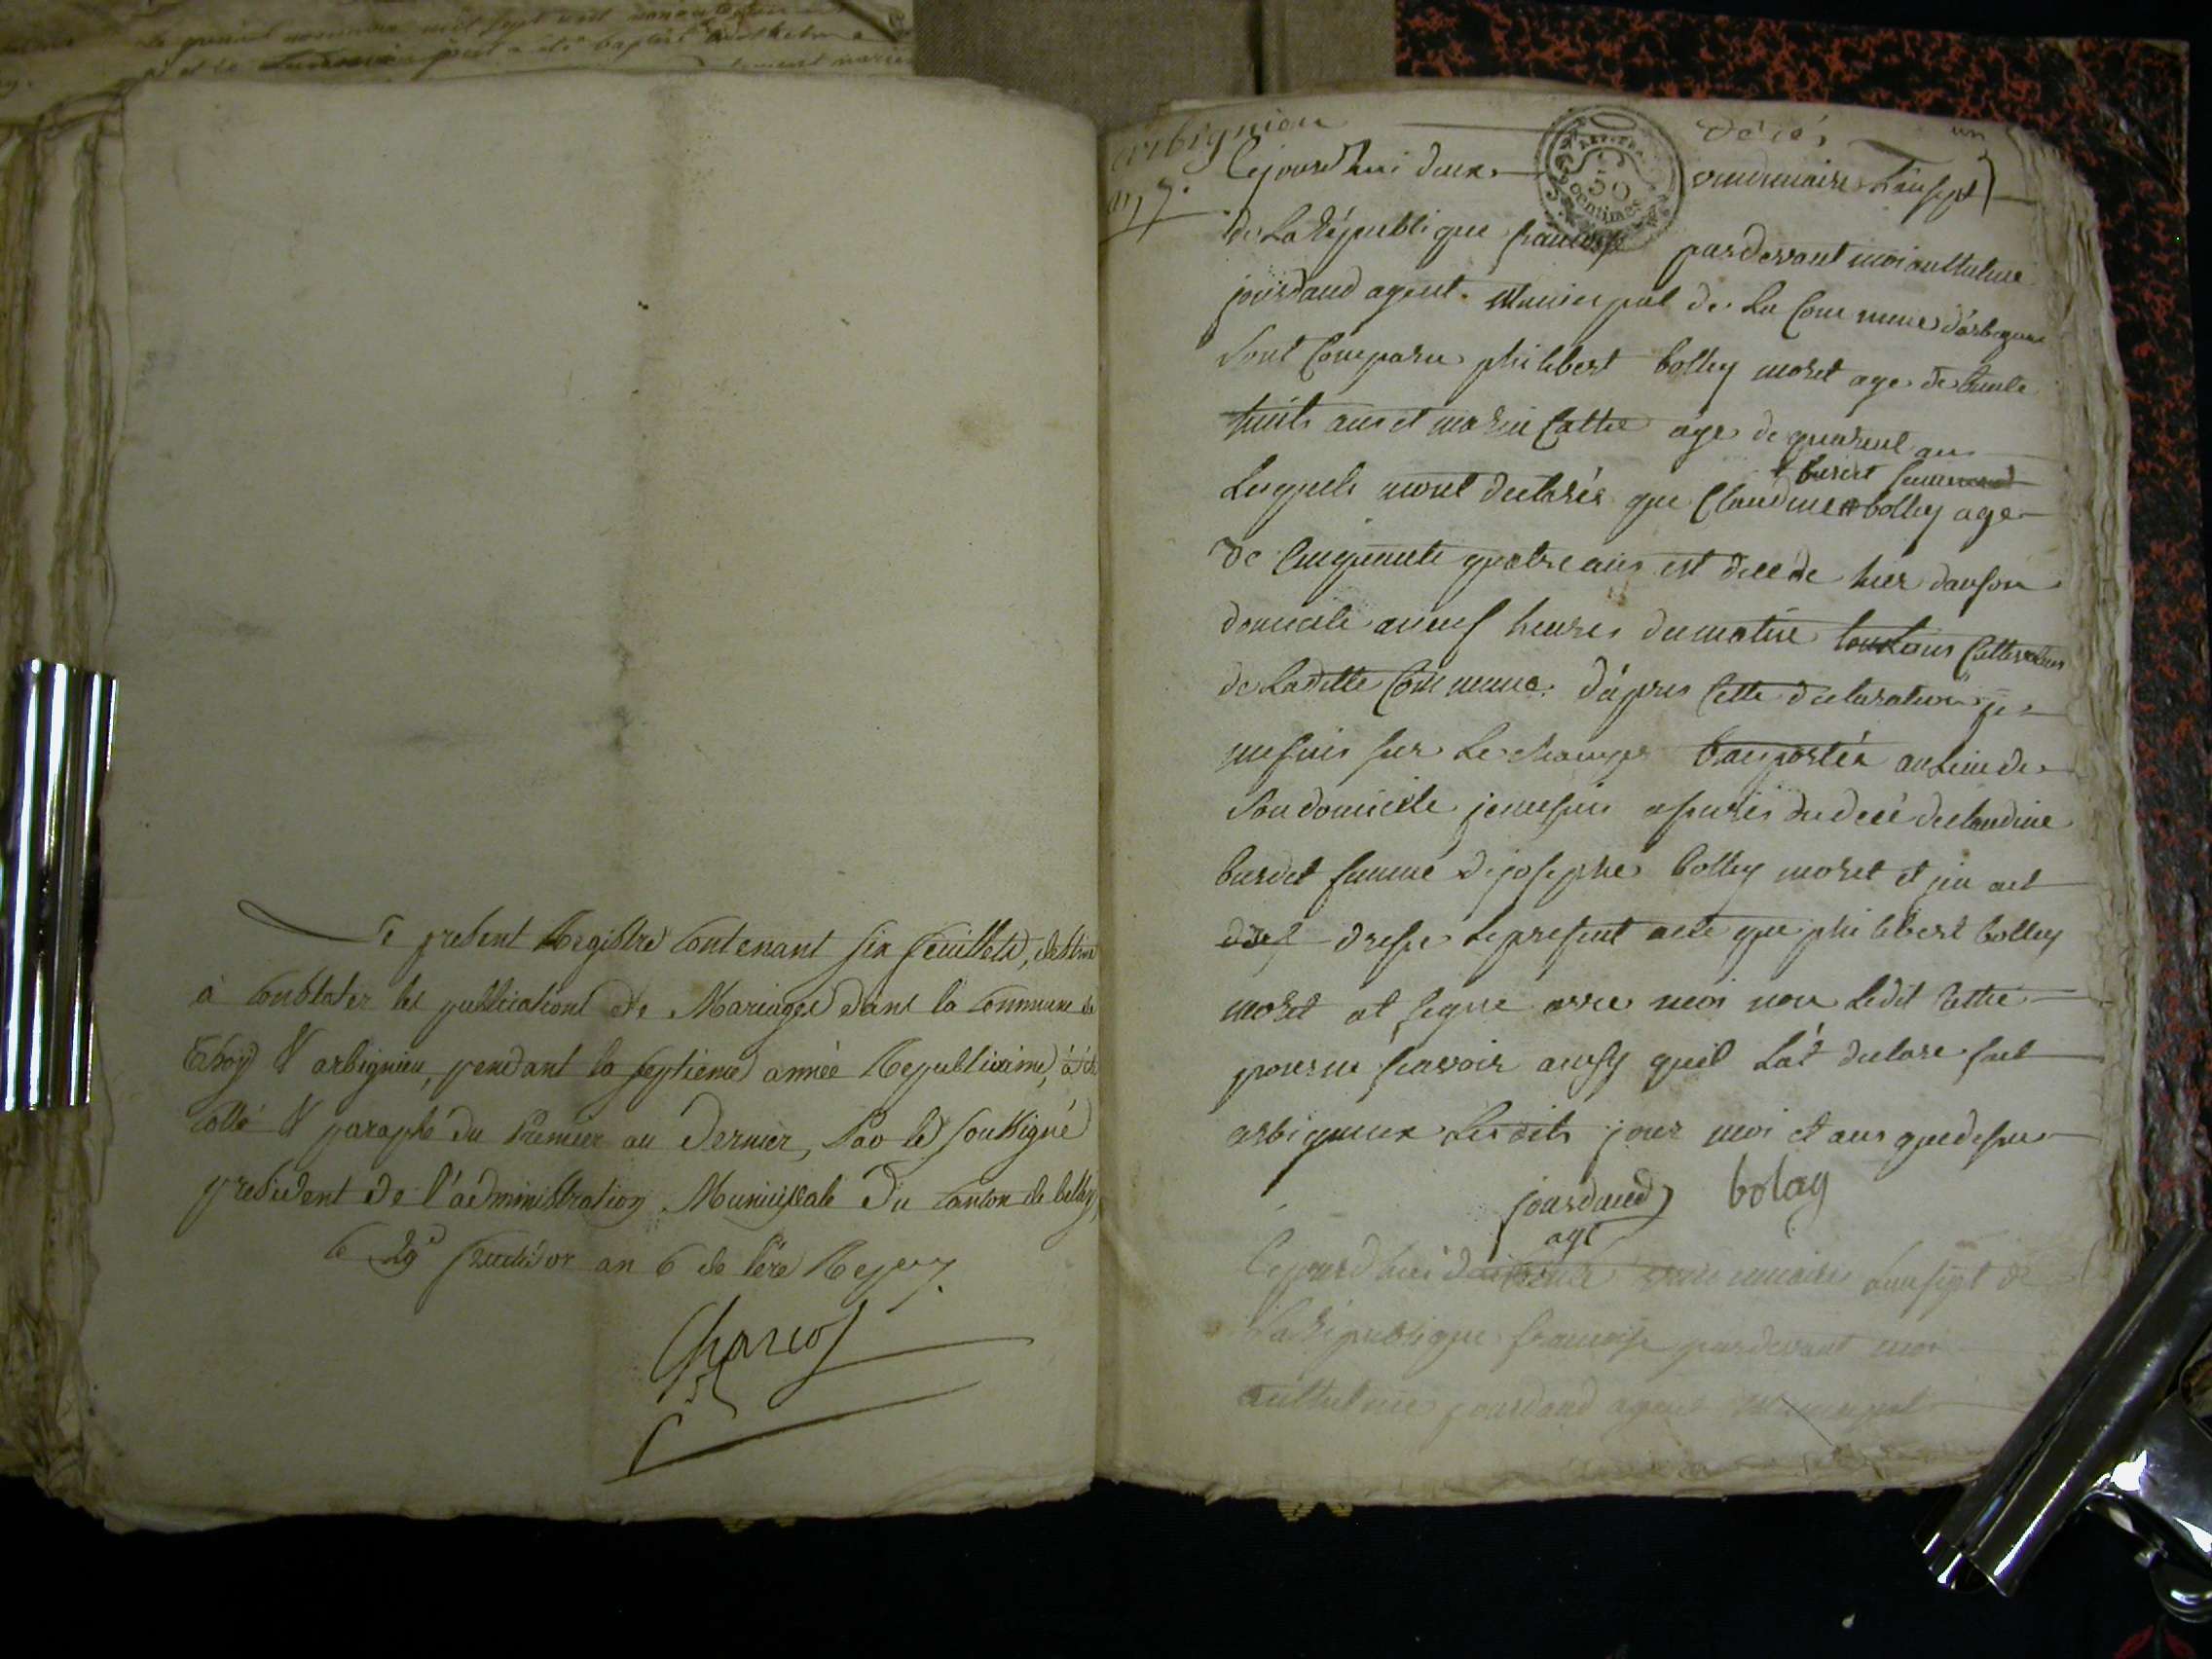 Le present Registre Contenant six feuillets, destiné
à Constater les publications de Mariages dans la Commune de
& arbignieu, pendant la septieme année Republicaine, a été
Cotté & paraphé du Premier au Dernier, Par le soussigné
president de l'administration Municipale Du canton de belley,
le 29e fructidor an 6 de l'ère Rep
Charcot
arbignieu
an 7.
Décés
un
50
centimes
Cejourd'hui deux vendemiaire L'an sept
de La République francoise pardevant moi anthelme
jourdand agent Municipal de La Commune d'arbignieu
sont Comparu philibert bolley moret age de trente
huits ans et Cattie age de quarent ans
burdet femme
Lesquels mont declarés que Claudine bolley age
de Cinquente quatre ans est decede hier dans son
domicile a neuf heures du matin tous
de Laditte Commune. d'apres Cette declaration je
me suis sur Le champs transportér au Lieu de
Son domicile je me suis assurés du decé de claudine
burdet femme de josephe bolley moret et j'en ait
dressé Le present acte que philibert bolley
moret at signe avec moi non Ledit Cattie
pour ne scavoir ainsy quil Lat declare fait
arbignieux Les dits jour moi et ans que dessus
jourdand bolay
agt
Cejourd'hui vendemiaire L'an sept de
La République francoise pardevant moi
anthelme jourdand agent Municipal